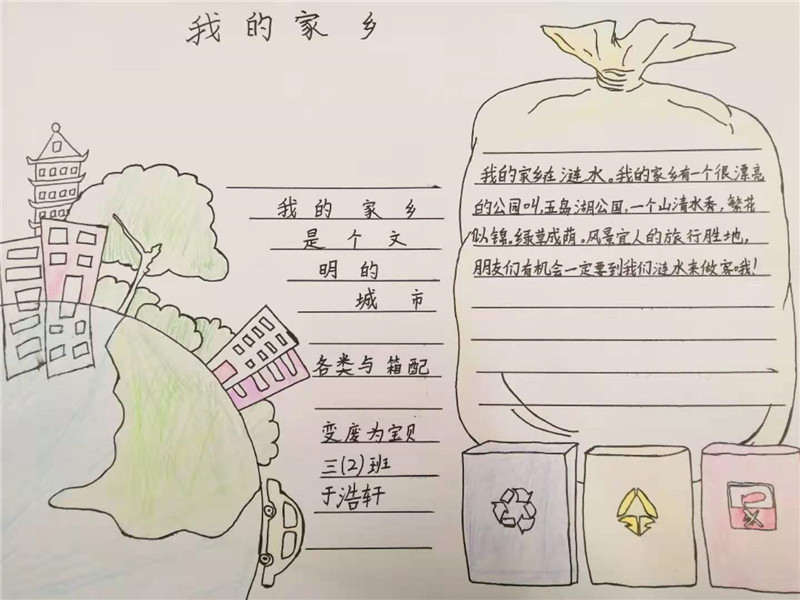 我的家乡
我的家乡
是个文
明的
城市
各类与箱配
变废为宝贝
三(2)班
于浩轩
我的家乡在涟水。我的家乡有一个很漂亮
的公园叫,五岛湖公园,一个山清水秀,繁花
似锦,绿草成荫。风景宜人的旅行胜地,
朋友们有机会一定要到我们涟水来做客哦!